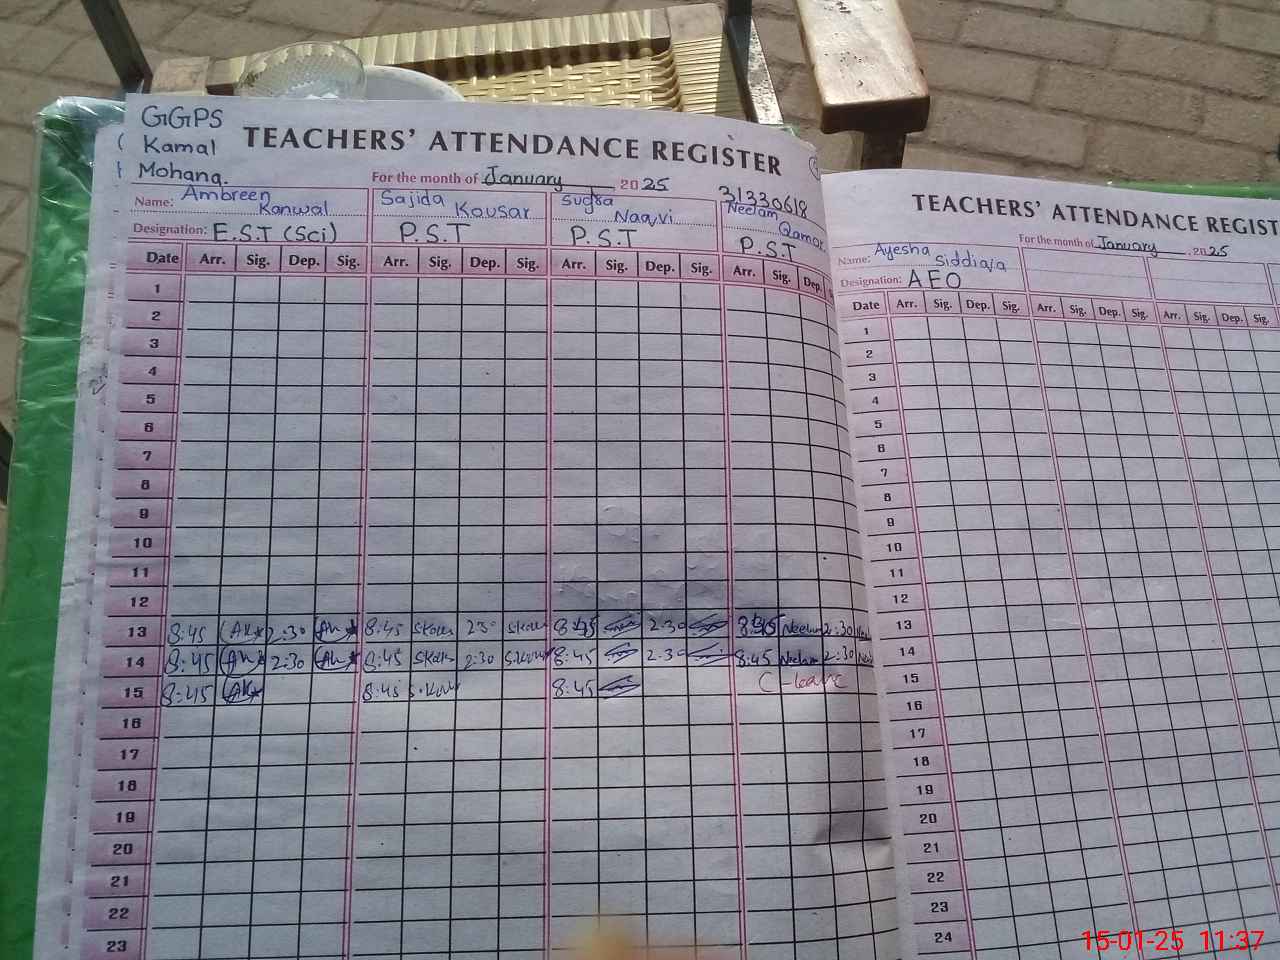 GGPS
Kamal
Mohana.
TEACHERS' ATTENDANCE REGISTER
For the month of January 2025
31330618
Name: Ambreen Kanwal Sajida Kousar Sugra Naqvi Neelam Qamar
Designation: E.S.T (Sci) P.S.T P.S.T P.S.T
Date Arr. Sig. Dep. Sig. Arr. Sig. Dep. Sig. Arr. Sig. Dep. Sig. Arr. Sig. Dep.
1
2
3
4
5
6
7
8
9
10
11
12
13 8:45 2:30 8:45 2:30 8:45 2:30 8:45 Neelam 2:30
14 8:45 2:30 8:45 2:30 8:45 2:30 8:45 Neelam 2:30
15 8:45 8:45 8:45 C-leave
16
17
18
19
20
21
22
23
TEACHERS' ATTENDANCE REGIST
For the month of January 2025
Name: Ayesha Siddiqa
Designation: AEO
Date Arr. Sig. Dep. Sig. Arr. Sig. Dep. Sig. Arr. Sig. Dep. Sig.
1
2
3
4
5
6
7
8
9
10
11
12
13
14
15
16
17
18
19
20
21
22
23
24
15-01-25 11:37